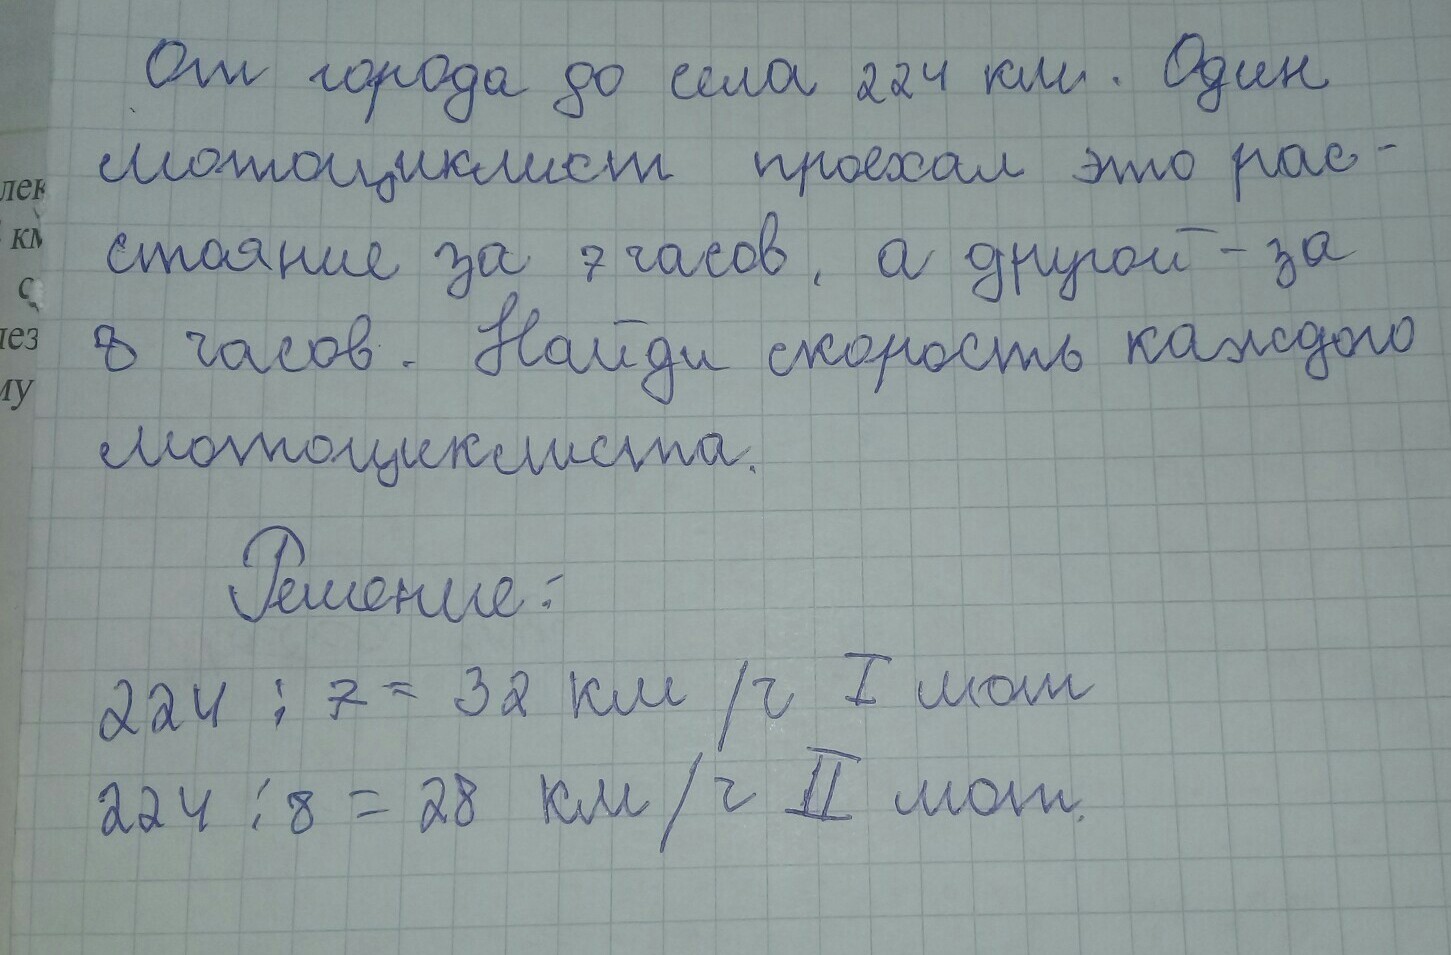 От города до села 224 км. Один
мотоциклист проехал это рас-
стояние за 7 часов, а другой - за
8 часов. Найди скорость каждого
мотоциклиста.
Решение:
224 : 7 = 32 км/ч I мот
224 : 8 = 28 км/ч II мот.
лек
км
с
му